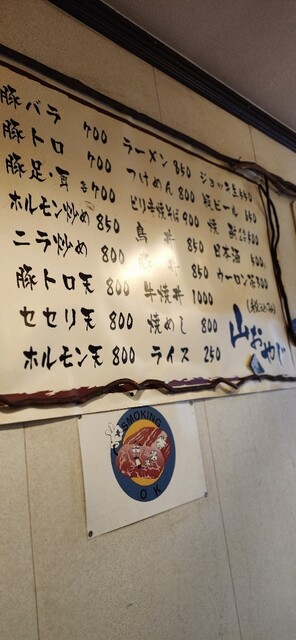 豚バラ 700
豚トロ 700
豚足・耳 各700
ホルモン炒め 850
ニラ炒め 800
豚トロ天 800
セセリ天 800
ホルモン天 800
ラーメン 850
つけめん 800
ピリ辛焼そば 900
鳥丼 850
丼 850
牛焼丼 1000
焼めし 800
ライス 250
ジョッキ生
瓶ビール
焼酎
日本酒
ウーロン茶
(税込み)
山おやじ
SMOKING
OK